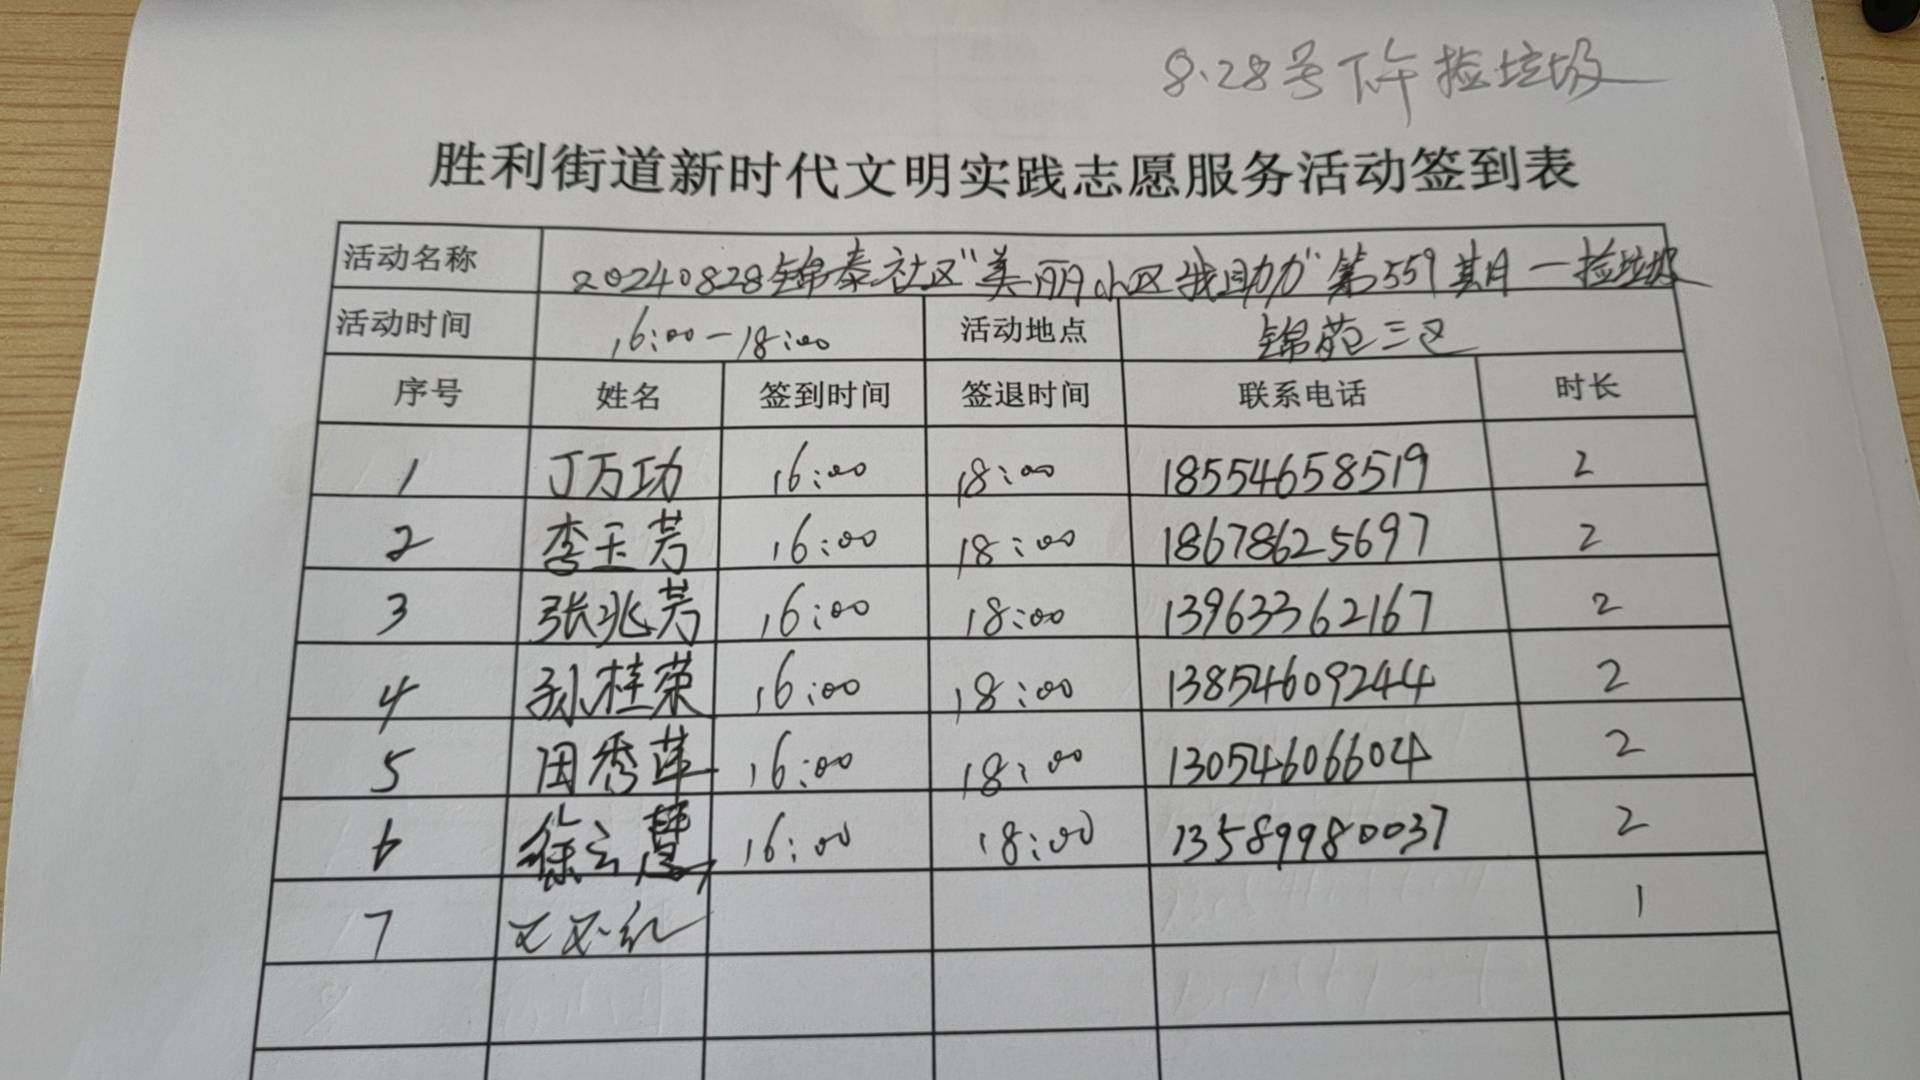 8.28号下午捡垃圾
胜利街道新时代文明实践志愿服务活动签到表
活动名称 20240828锦泰社区"美丽小区我助力"第559期一捡垃圾
活动时间 16:00-18:00 活动地点 锦苑三区
序号 姓名 签到时间 签退时间 联系电话 时长
1 丁万功 16:00 18:00 18554658519 2
2 李玉芳 16:00 18:00 18678625697 2
3 张兆芳 16:00 18:00 13963362167 2
4 孙桂荣 16:00 18:00 13854609244 2
5 田秀莲 16:00 18:00 13054606604 2
6 徐云慧 16:00 18:00 13589980037 2
7 1